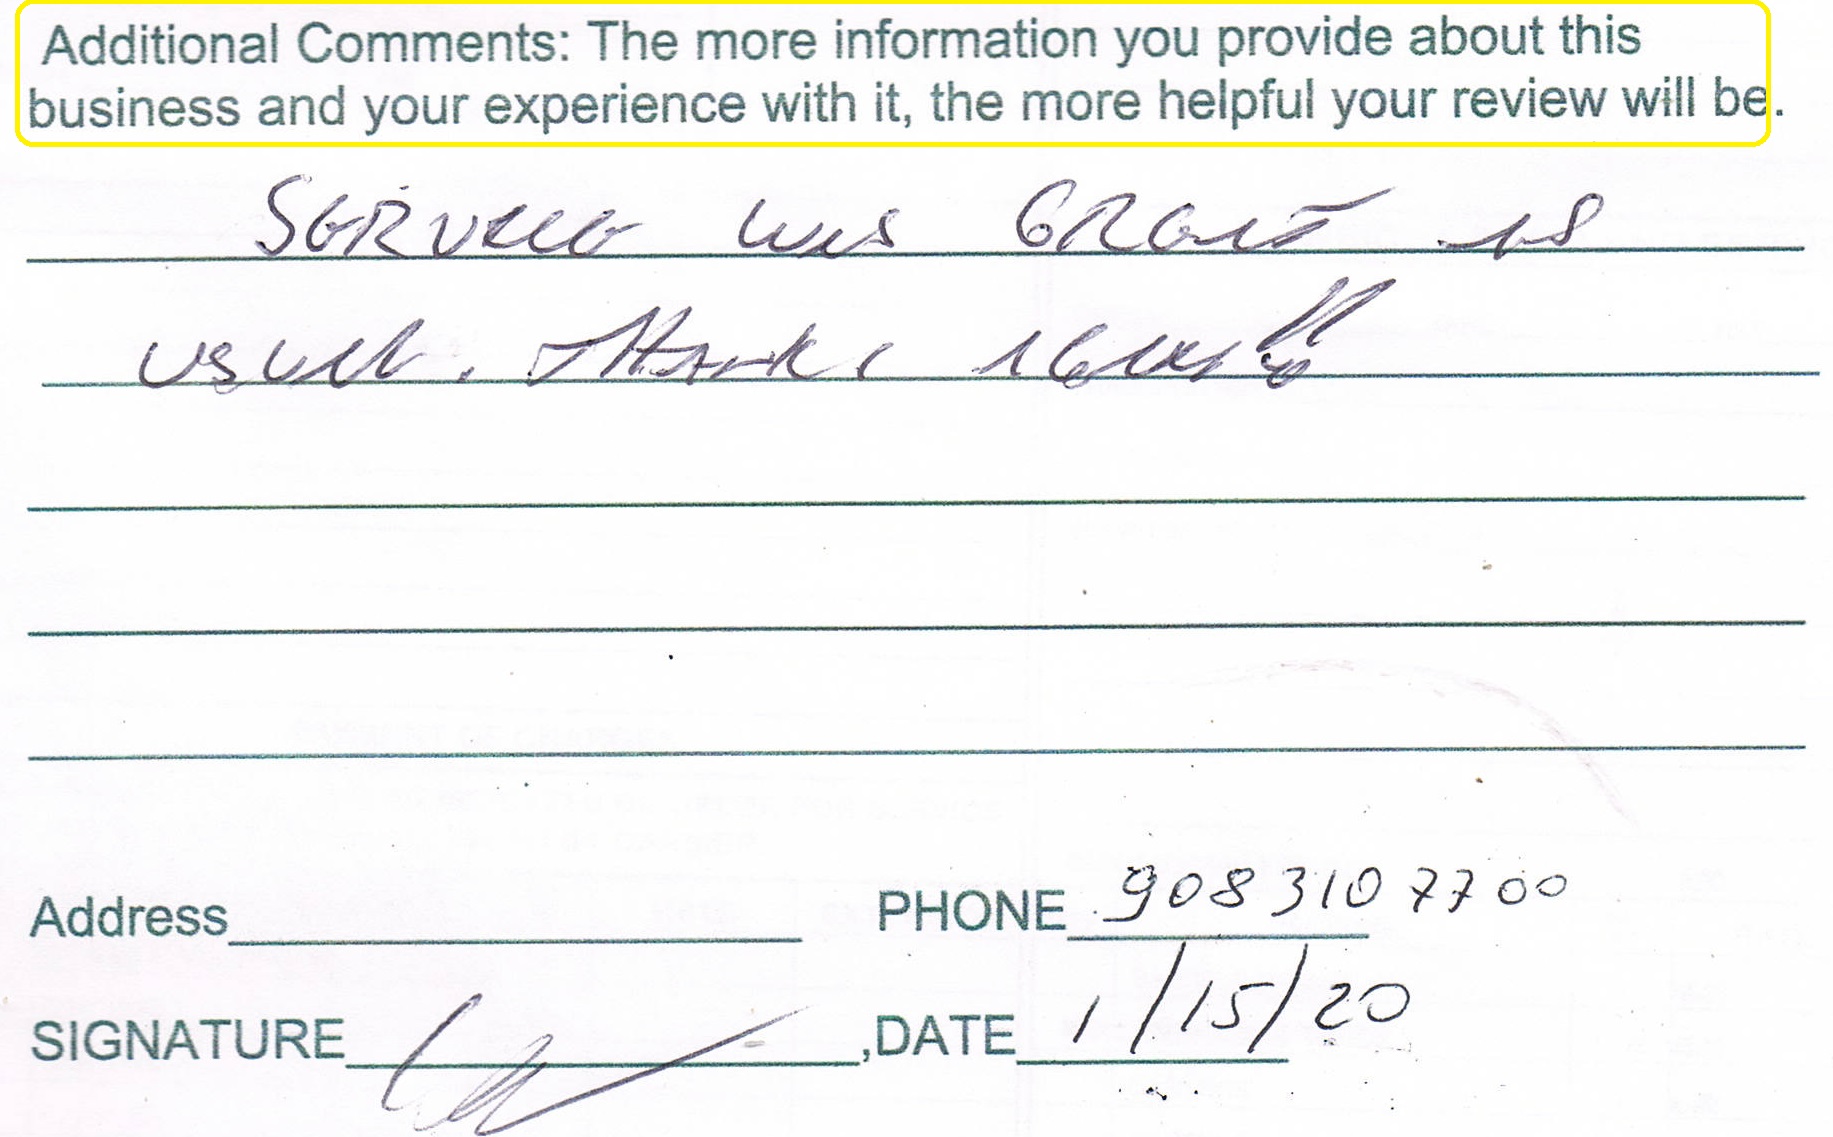 Additional Comments: The more information you provide about this
business and your experience with it, the more helpful your review will be.
SERVICE WAS GREAT AS
USUAL. THANKS AGAIN!!
Address PHONE 908 310 7700
SIGNATURE ,DATE 1/15/20